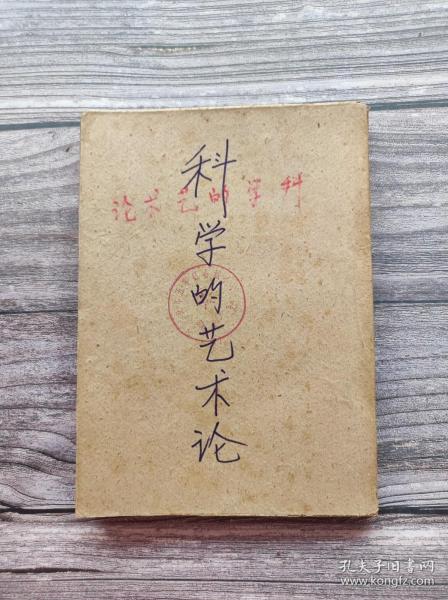 科学的艺术论
论术艺的学科
孔夫子旧书网
www.kongfz.com